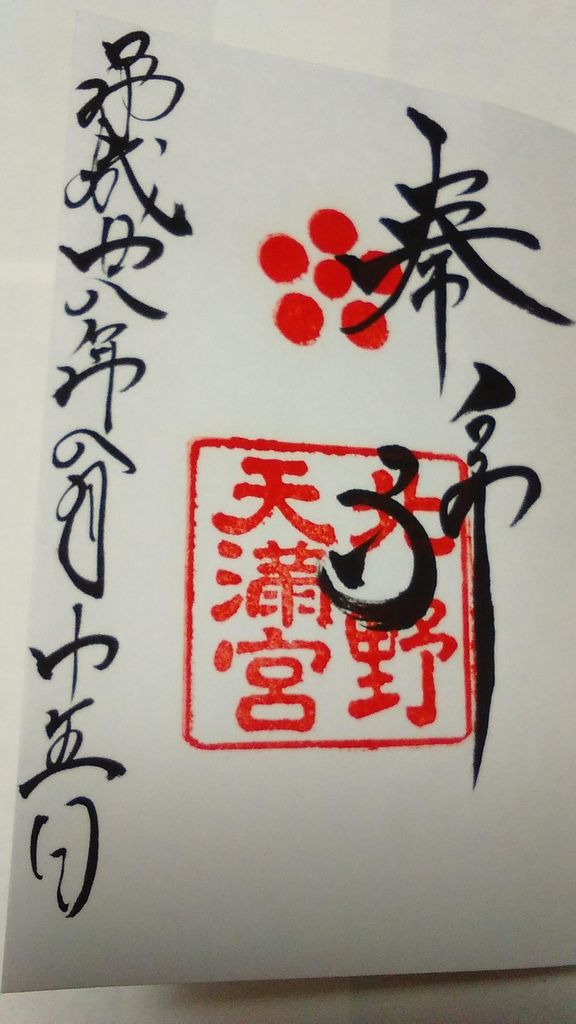 奉拜
北野
天満宮
平成廿八年八月廿五日